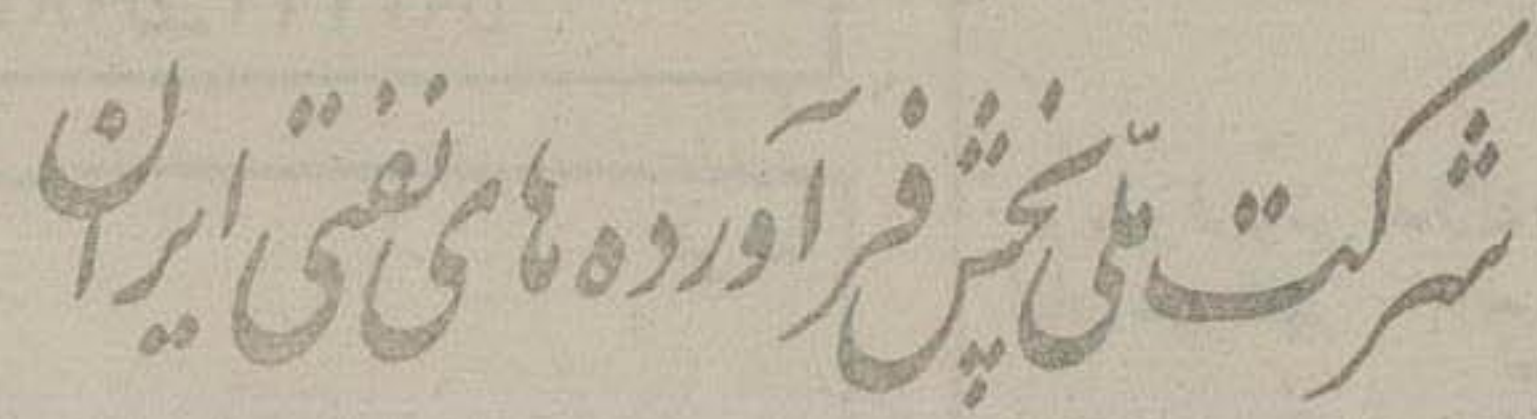 شرکت ملّی پخش فرآورده های نفتی ایران